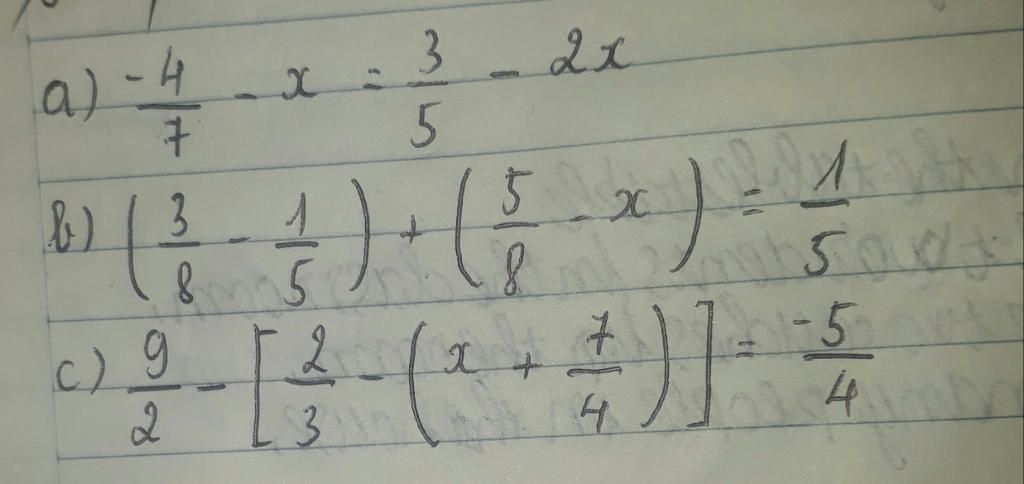 a) -4/7 - x = 3/5 - 2x
b) (3/8 - 1/5) + (5/8 - x) = 1/5
c) 9/2 - [2/3 - (x + 7/4)] = -5/4